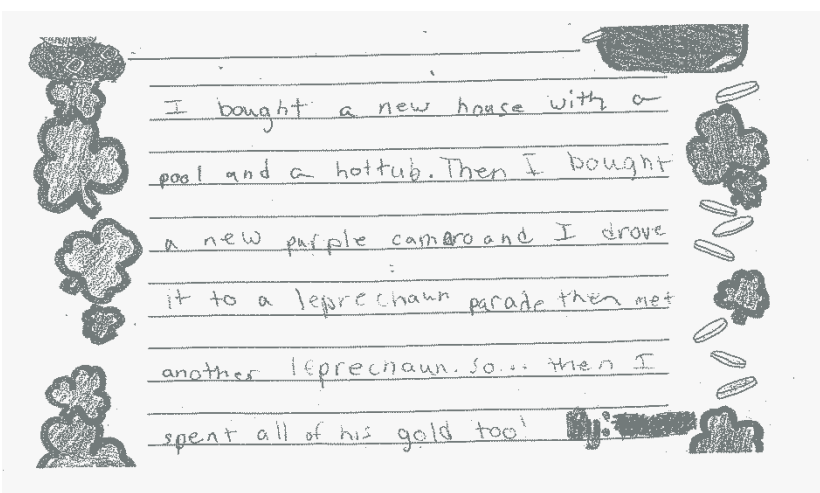 I bought a new house with a
pool and a hottub. Then I bought
a new purple camaro and I drove
it to a leprechaun parade then met
another leprechaun. So... then I
spent all of his gold too!
By: